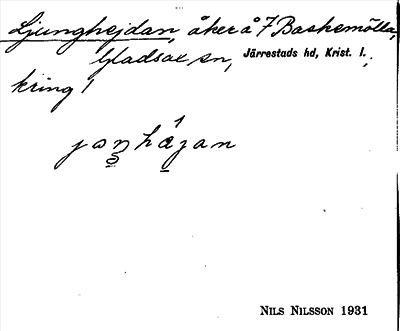 Ljunghejdan, åker å 7 Baskemölla,
Gladsax sn, Järrestads hd, Krist. l.,
kring!
Nils Nilsson 1931